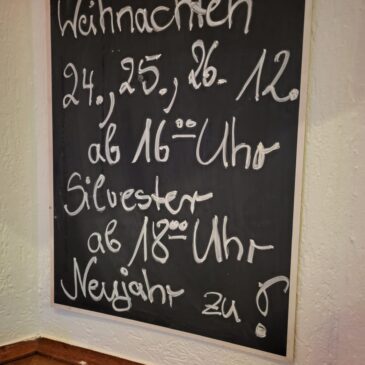 Weihnachten
24., 25., 26. 12.
ab 16⁰⁰ Uhr
Silvester
ab 18⁰⁰ Uhr
Neujahr zu !